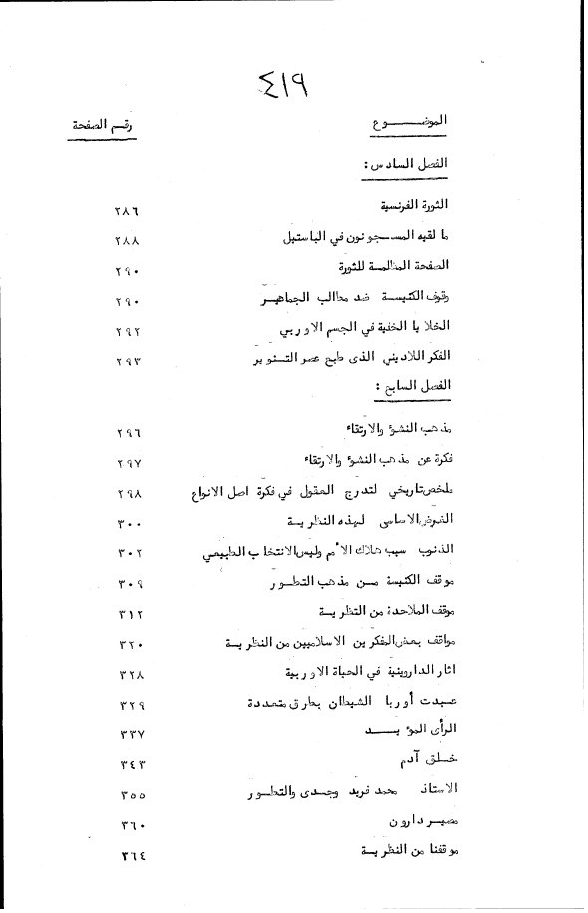 ٤١٩
الموضوع رقم الصفحة
الفصل السادس :
الثورة الفرنسية ٢٨٦
ما لقيه المسجونون في الباستيل ٢٨٨
الصفحة المظلمة للثورة ٢٩٠
وقوف الكنيسة ضد مطالب الجماهير ٢٩٠
الخلايا الخفية في الجسم الاوربي ٢٩٢
الفكر اللاديني الذى طبع عصر التنوير ٢٩٣
الفصل السابع :
مذهب النشؤ والارتقاء ٢٩٦
فكرة عن مذهب النشؤ والارتقاء ٢٩٧
ملخص تاريخي لتدرج العقول في فكرة اصل الانواع ٢٩٨
الغرض الاساسى لهذه النظرية ٣٠٠
الذنوب سبب هلاك الأمم وليس الانتخاب الطبيعي ٣٠٢
موقف الكنيسة من مذهب التطور ٣٠٩
موقف الملاحدة من النظرية ٣١٢
مواقف بعض المفكرين الاسلاميين من النظرية ٣٢٠
اثار الداروينية في الحياة الاوربية ٣٢٨
عبدت أوربا الشيطان بطرق متعددة ٣٢٩
الرأى المؤيد ٣٣٧
خلق آدم ٣٤٣
الاستاذ محمد فريد وجدى والتطور ٣٥٥
مصير دارون ٣٦٠
موقفنا من النظرية ٣٦٤